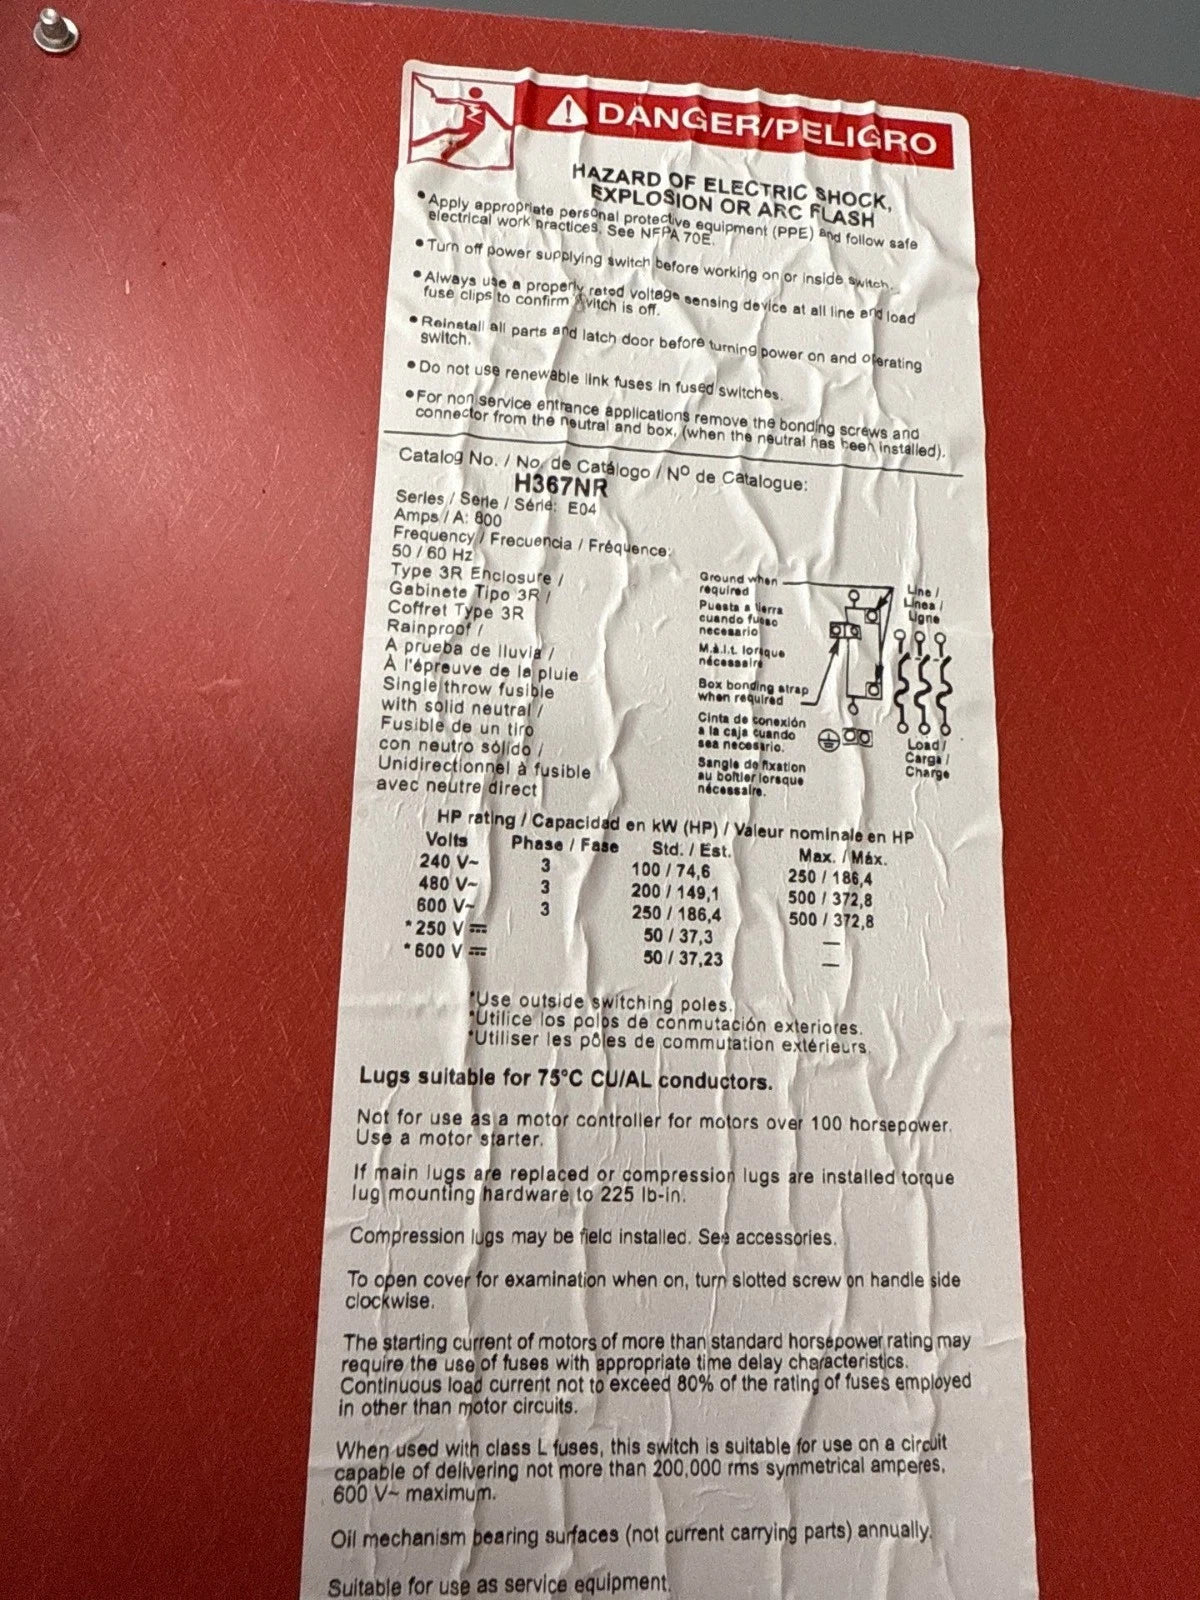 DANGER/PELIGRO
HAZARD OF ELECTRIC SHOCK,
EXPLOSION OR ARC FLASH
• Apply appropriate personal protective equipment (PPE) and follow safe
electrical work practices. See NFPA 70E.
• Turn off power supplying switch before working on or inside switch.
• Always use a properly rated voltage sensing device at all line and load
fuse clips to confirm switch is off.
• Reinstall all parts and latch door before turning power on and operating
switch.
• Do not use renewable link fuses in fused switches.
• For non service entrance applications remove the bonding screws and
connector from the neutral and box, (when the neutral has been installed).
Catalog No. / No. de Catálogo / Nº de Catalogue:
H367NR
Series / Serie / Série: E04
Amps / A: 800
Frequency / Frecuencia / Fréquence:
50 / 60 Hz
Type 3R Enclosure /
Gabinete Tipo 3R /
Coffret Type 3R
Rainproof /
A prueba de lluvia /
À l'épreuve de la pluie
Single throw fusible
with solid neutral /
Fusible de un tiro
con neutro sólido /
Unidirectionnel à fusible
avec neutre direct
Ground when
required
Puesta a tierra
cuando fueso
necesario
M.à.l.t. lorsque
nécessaire
Box bonding strap
when required
Cinta de conexión
a la caja cuando
sea necesario.
Sangle de fixation
au boîtier lorsque
nécessaire.
Line /
Línea /
Ligne
Load /
Carga /
Charge
HP rating / Capacidad en kW (HP) / Valeur nominale en HP
Volts Phase / Fase Std. / Est. Max. / Máx.
240 V~ 3 100 / 74,6 250 / 186,4
480 V~ 3 200 / 149,1 500 / 372,8
600 V~ 3 250 / 186,4 500 / 372,8
*250 V ⎓ 50 / 37,3 —
*600 V ⎓ 50 / 37,23 —
*Use outside switching poles.
*Utilice los polos de conmutación exteriores.
*Utiliser les pôles de commutation extérieurs.
Lugs suitable for 75°C CU/AL conductors.
Not for use as a motor controller for motors over 100 horsepower.
Use a motor starter.
If main lugs are replaced or compression lugs are installed torque
lug mounting hardware to 225 lb-in.
Compression lugs may be field installed. See accessories.
To open cover for examination when on, turn slotted screw on handle side
clockwise.
The starting current of motors of more than standard horsepower rating may
require the use of fuses with appropriate time delay characteristics.
Continuous load current not to exceed 80% of the rating of fuses employed
in other than motor circuits.
When used with class L fuses, this switch is suitable for use on a circuit
capable of delivering not more than 200,000 rms symmetrical amperes,
600 V~ maximum.
Oil mechanism bearing surfaces (not current carrying parts) annually.
Suitable for use as service equipment.